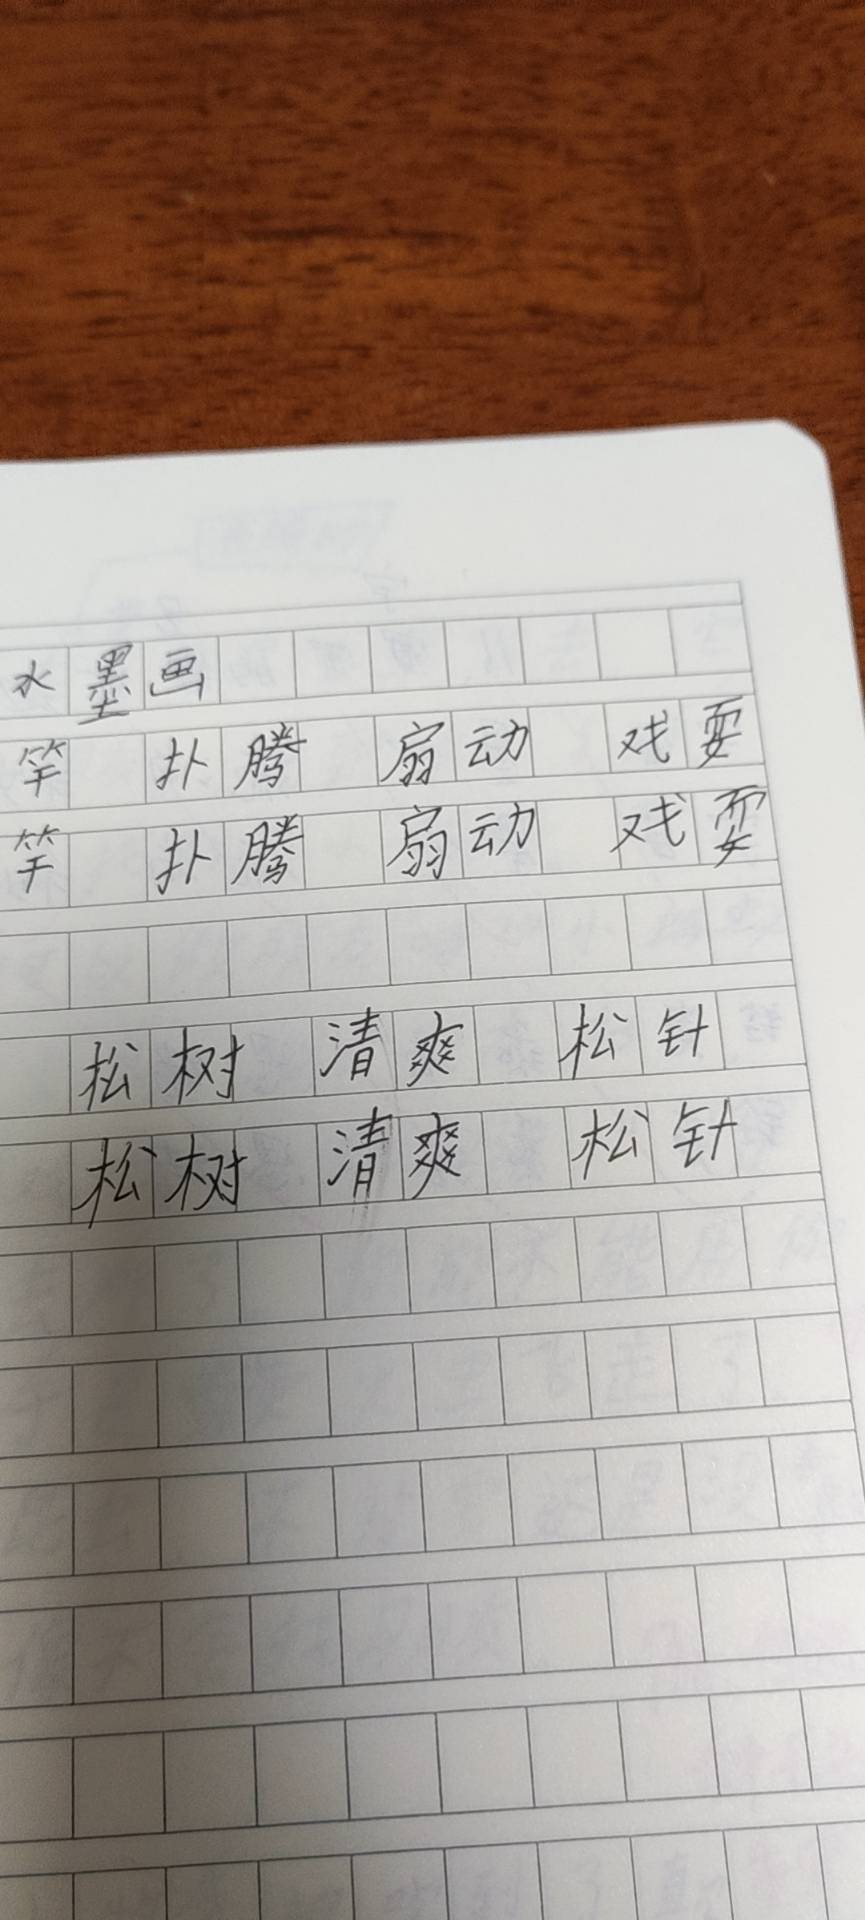 水墨画
竿 扑腾 扇动 戏耍
竿 扑腾 扇动 戏耍
松树 清爽 松针
松树 清爽 松针